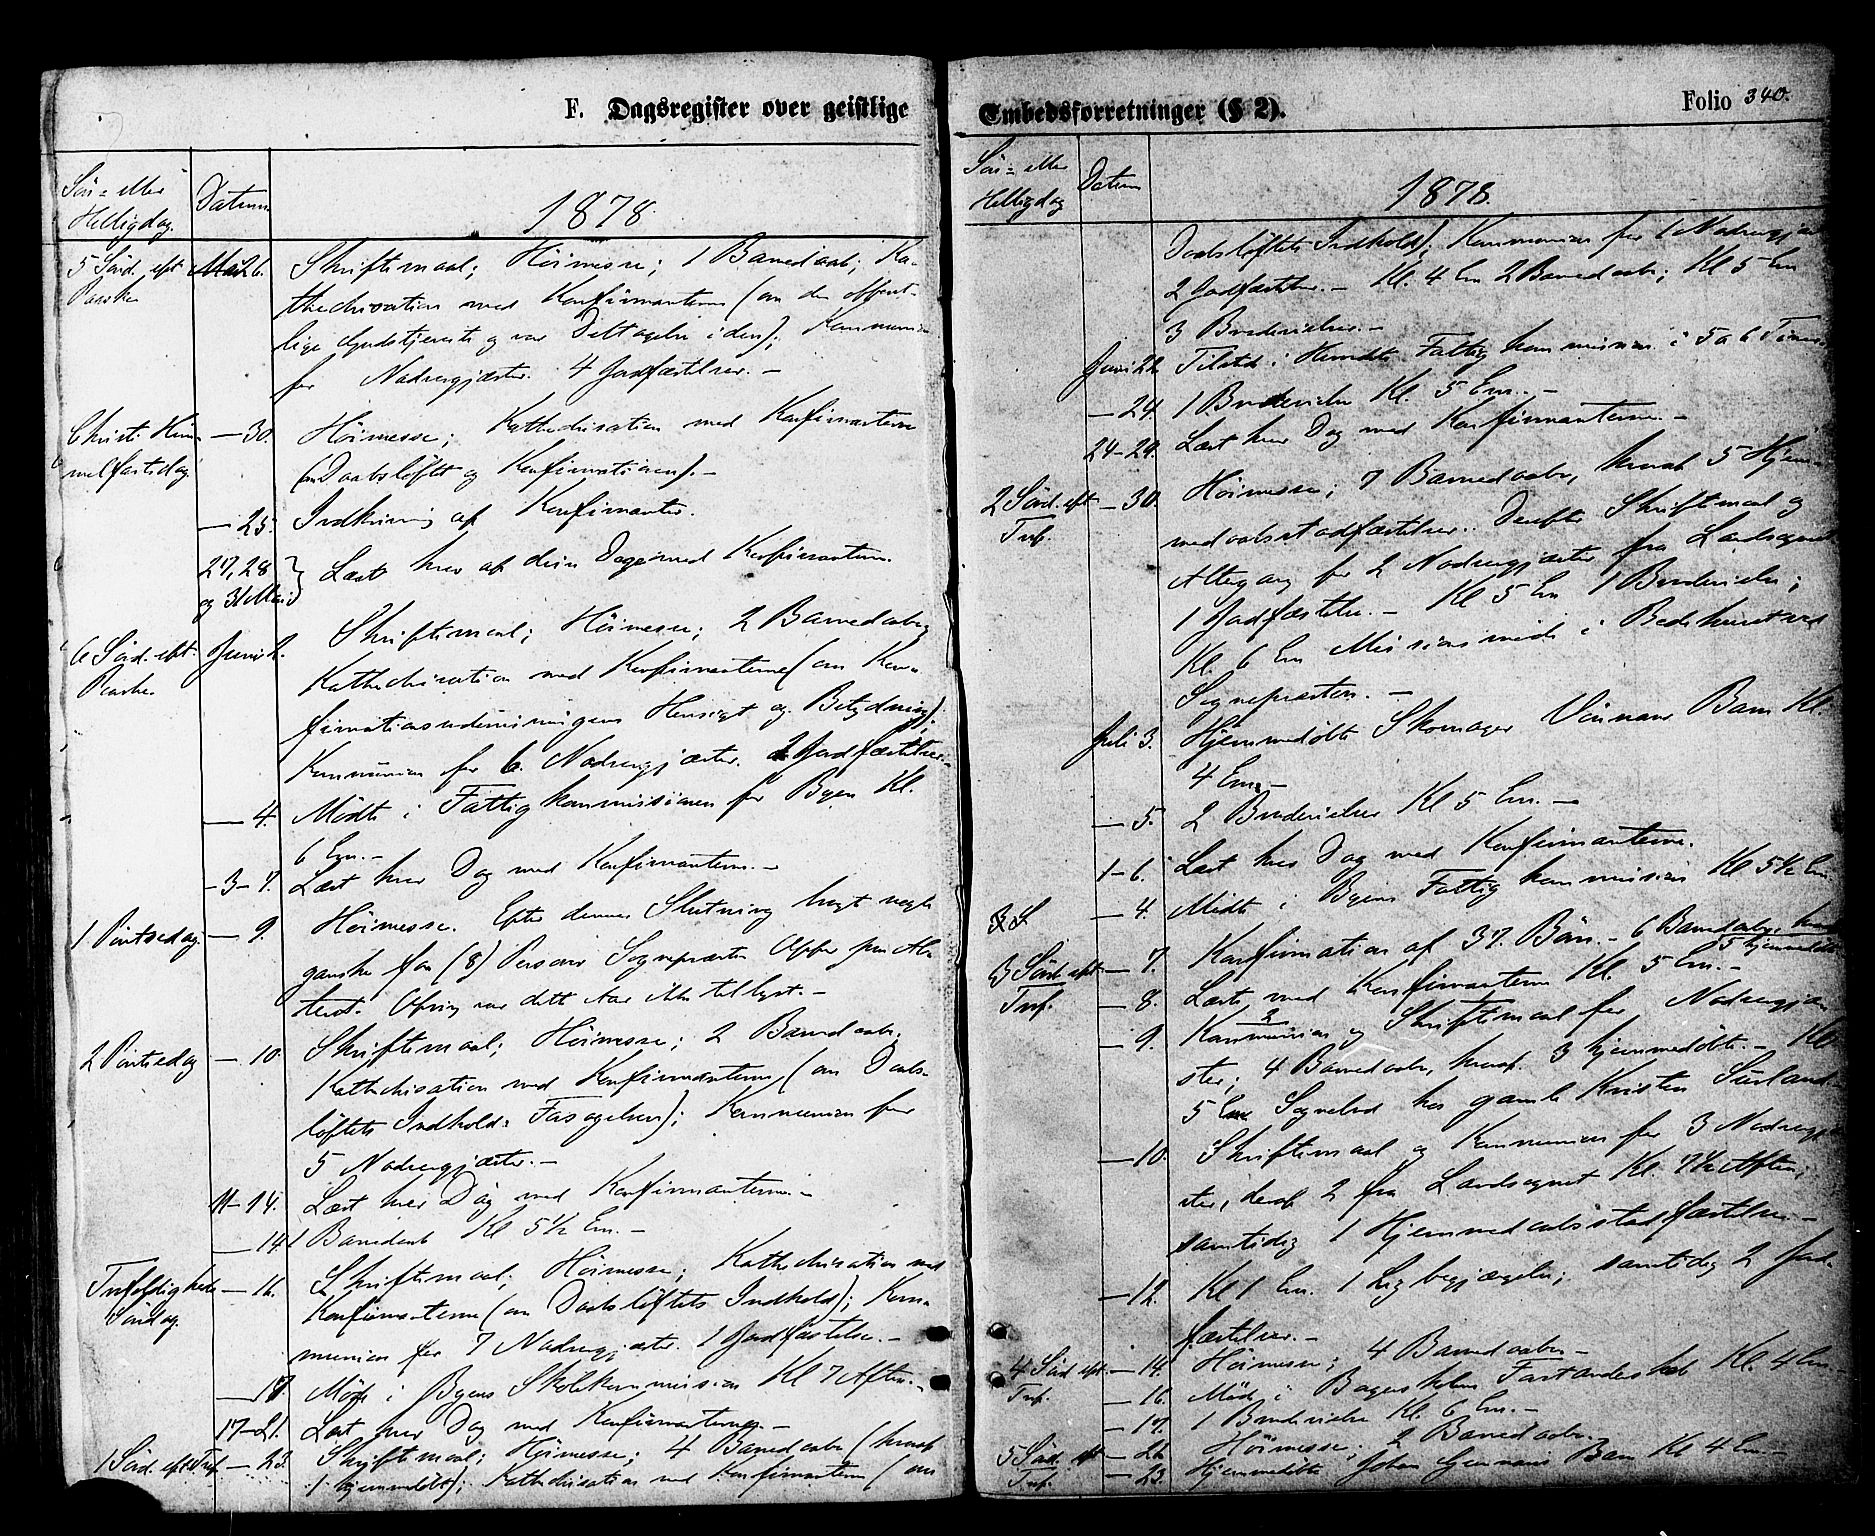 F. Dagsregister over geistlige
Søn- eller
Helligdag.
Datum
1878.
5 Sønd. eft.
Paaske
Mai 26.
Skriftemaal; Høimesse; 1 Barnedaab; Ka-
thechisation med Konfirmanterne (om den offent-
lige Gudstjeneste og vor Deltagelse i den); Kommunion
for Nadvergjæster. 4 Jordfæstelser. –
Christi Him-
melfartsdag
– 30.
Høimesse; Kathechisation med Konfirmanterne
(om Daabsløftet og Konfirmationen). –
– 25.
Indskrivning af Konfirmanter.
27, 28
og 31 Mai
Læst hver af disse Dage med Konfirmanterne.
6 Sønd. eft.
Paaske
Juni 2.
Skriftemaal; Høimesse; 2 Barnedaab;
Kathechisation med Konfirmanterne (om Kon-
firmationsundervisningens Hensigt og Betydning).
Kommunion for 6 Nadvergjæster. 2 Jordfæstelser. –
– 4.
Mødte i Fattigkommissionen for Byen Kl.
6 Em. –
– 3 – 7.
Læst hver Dag med Konfirmanterne. –
1 Pintsedag.
– 9.
Høimesse. Efter dennes Slutning bragt nogle
ganske faa (8) Personer Sognepræsten Offer paa Al-
teret. Ofring var dette Aar ikke tillyst. –
2 Pintsedag
– 10.
Skriftemaal; Høimesse; 2 Barnedaab;
Kathechisation med Konfirmanterne (om Daabs-
løftets Indhold: Forsagelsen); Kommunion for
5 Nadvergjæster. –
11 – 14.
Læst hver Dag med Konfirmanterne. –
– 14
1 Barnedaab Kl 5½ Em. –
Trefoldigheds
Søndag.
– 16.
Skriftemaal; Høimesse; Kathechisation med
Konfirmanterne (om Daabsløftets Indhold); Kom-
munion for 7 Nadvergjæster. 1 Jordfæstelse. –
– 17.
Møde i Byens Skolekommission Kl 7 Aften. –
17 – 21.
Læst hver Dag med Konfirmanterne. –
1 Sønd. eft Tref.
– 23.
Skriftemaal; Høimesse; 4 Barnedaab (hvoraf
1 hjemmedøbt); Kathechisation med Konfirmanterne (om
Embedsforretninger (§ 2).
Folio 340.
Søn- eller
Helligdag
Datum
1878.
Daabsløftets Indhold); Kommunion for 6 Nadvergjæst
2 Jordfæstelser. – Kl. 4 Em 2 Barnedaab; Kl 5 Em
3 Brudevielser. –
Juni 22.
Tilsted i Herredets Fattigkommission i 5 a 6 Timer.
– 24.
1 Brudevielse Kl. 5 Em. –
24 – 29.
Læst hver Dag med Konfirmanterne. –
2 Sønd. eft
Tref.
– 30.
Høimesse; 7 Barnedaab, hvoraf 5 Hjem-
medaabsstadfæstelser. Derefter Skriftemaal og
Altergang for 2 Nadvergjæster fra Landsognet
1 Jordfæstelse. – Kl 5 Em 1 Brudevielse;
Kl. 6 Em Missionsmøde i Bedehuset ved
Sognepræsten. –
Juli 3.
Hjemmedøbte Skomager Barn Kl.
4 Em. –
– 5.
2 Brudevielser Kl 5 Em. –
1 – 6.
Læst hver Dag med Konfirmanterne.
– 4.
Mødte i Byens Fattigkommission Kl 5½ Em.
3 Sønd. eft
Tref.
– 7.
Konfirmation af 37 Børn. – 6 Barnedaab, hvoraf
5 hjemmedøbte
– 8.
Læste med Konfirmanterne Kl. 5 Em. –
– 9.
Kommunion og Skriftemaal for 2 Nadvergjæ-
ster; 4 Barnedaab, hvoraf 3 hjemmedøbte. – Kl
5 Em Sognebud hos gamle Kristen
– 10.
Skriftemaal og Kommunion for 3 Nadvergjæ-
ster, deraf 2 fra Landsognet Kl. 7½ Aften;
samtidig 1 Hjemmedaabsstadfæstelse. –
– 12.
Kl 1 Em. 1 Ligbegjængelse; samtidig 2 Jord-
fæstelser. –
4 Sønd. eft
Tref.
– 14.
Høimesse; 4 Barnedaab. –
– 16.
Møde i Borgerskolens Forstanderskab Kl. 4 Em.
– 17.
1 Brudevielse Kl. 6 Em. –
5 Sønd. eft
Tref.
– 21.
Høimesse; 2 Barnedaab.
– 23.
Hjemmedøbte Johan Barn Kl 4 Em –